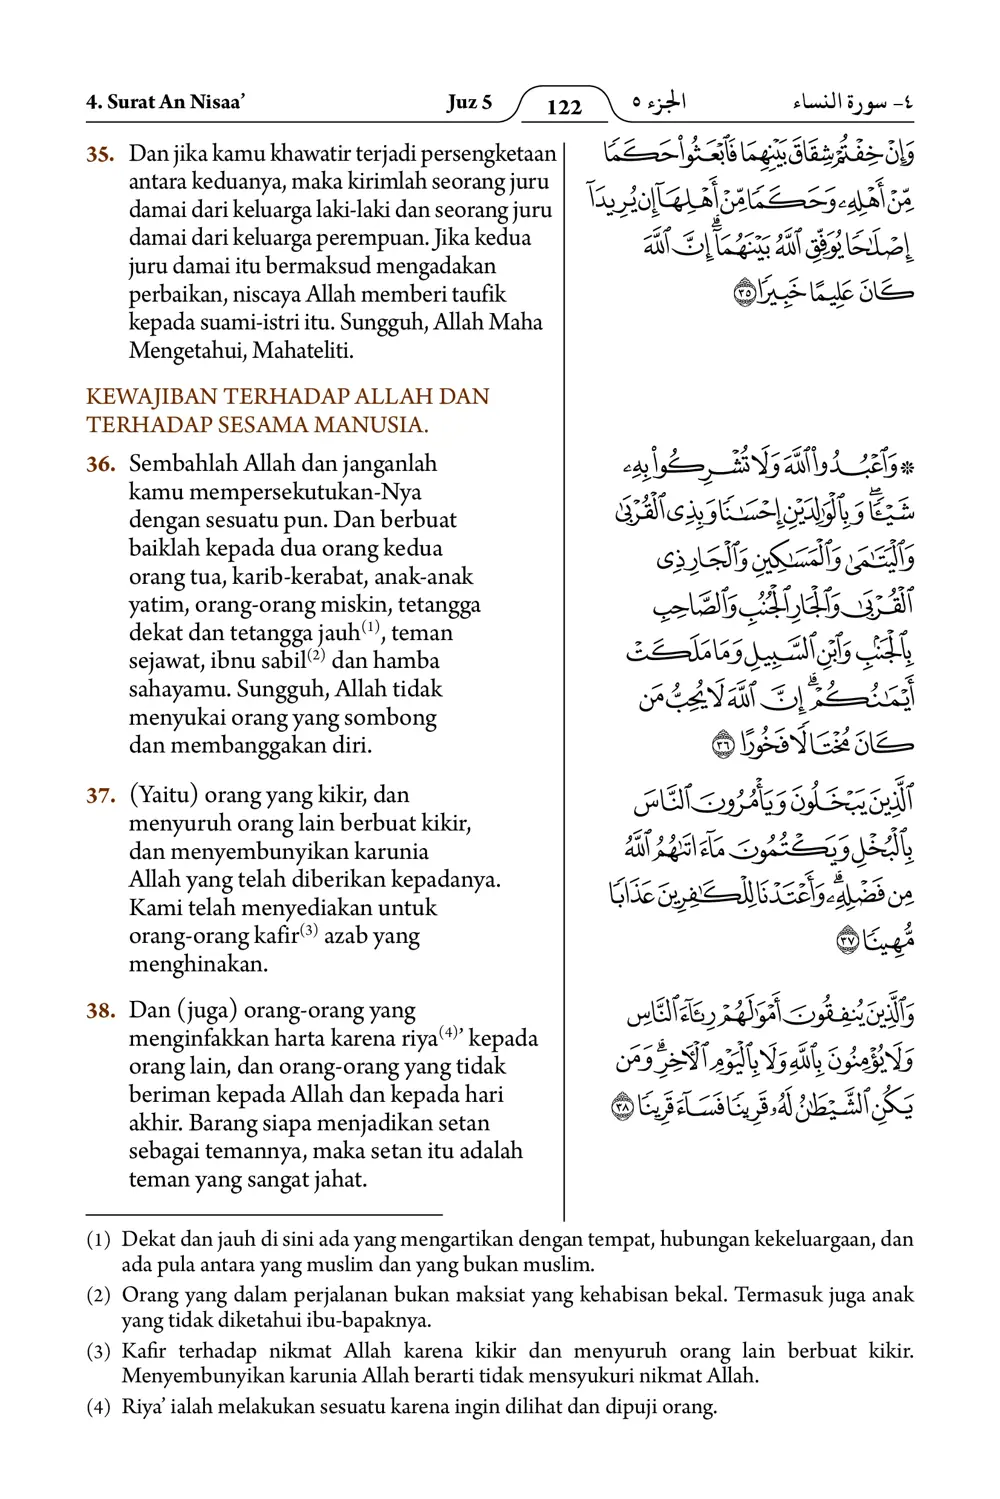 4. Surat An Nisaa’
Juz 5
122
الجزء ٥
٤- سورة النساء
35. Dan jika kamu khawatir terjadi persengketaan
antara keduanya, maka kirimlah seorang juru
damai dari keluarga laki-laki dan seorang juru
damai dari keluarga perempuan. Jika kedua
juru damai itu bermaksud mengadakan
perbaikan, niscaya Allah memberi taufik
kepada suami-istri itu. Sungguh, Allah Maha
Mengetahui, Mahateliti.
KEWAJIBAN TERHADAP ALLAH DAN
TERHADAP SESAMA MANUSIA.
36. Sembahlah Allah dan janganlah
kamu mempersekutukan-Nya
dengan sesuatu pun. Dan berbuat
baiklah kepada dua orang kedua
orang tua, karib-kerabat, anak-anak
yatim, orang-orang miskin, tetangga
dekat dan tetangga jauh(1), teman
sejawat, ibnu sabil(2) dan hamba
sahayamu. Sungguh, Allah tidak
menyukai orang yang sombong
dan membanggakan diri.
37. (Yaitu) orang yang kikir, dan
menyuruh orang lain berbuat kikir,
dan menyembunyikan karunia
Allah yang telah diberikan kepadanya.
Kami telah menyediakan untuk
orang-orang kafir(3) azab yang
menghinakan.
38. Dan (juga) orang-orang yang
menginfakkan harta karena riya(4)’ kepada
orang lain, dan orang-orang yang tidak
beriman kepada Allah dan kepada hari
akhir. Barang siapa menjadikan setan
sebagai temannya, maka setan itu adalah
teman yang sangat jahat.
وَإِنْ خِفْتُمْ شِقَاقَ بَيْنِهِمَا فَٱبْعَثُوا۟ حَكَمًا
مِّنْ أَهْلِهِۦ وَحَكَمًا مِّنْ أَهْلِهَآ إِن يُرِيدَآ
إِصْلَٰحًا يُوَفِّقِ ٱللَّهُ بَيْنَهُمَآ ۗ إِنَّ ٱللَّهَ
كَانَ عَلِيمًا خَبِيرًا ٣٥
۞ وَٱعْبُدُوا۟ ٱللَّهَ وَلَا تُشْرِكُوا۟ بِهِۦ
شَيْـًٔا ۖ وَبِٱلْوَٰلِدَيْنِ إِحْسَٰنًا وَبِذِى ٱلْقُرْبَىٰ
وَٱلْيَتَٰمَىٰ وَٱلْمَسَٰكِينِ وَٱلْجَارِ ذِى
ٱلْقُرْبَىٰ وَٱلْجَارِ ٱلْجُنُبِ وَٱلصَّاحِبِ
بِٱلْجَنۢبِ وَٱبْنِ ٱلسَّبِيلِ وَمَا مَلَكَتْ
أَيْمَٰنُكُمْ ۗ إِنَّ ٱللَّهَ لَا يُحِبُّ مَن
كَانَ مُخْتَالًا فَخُورًا ٣٦
ٱلَّذِينَ يَبْخَلُونَ وَيَأْمُرُونَ ٱلنَّاسَ
بِٱلْبُخْلِ وَيَكْتُمُونَ مَآ ءَاتَىٰهُمُ ٱللَّهُ
مِن فَضْلِهِۦ ۗ وَأَعْتَدْنَا لِلْكَٰفِرِينَ عَذَابًا
مُّهِينًا ٣٧
وَٱلَّذِينَ يُنفِقُونَ أَمْوَٰلَهُمْ رِئَآءَ ٱلنَّاسِ
وَلَا يُؤْمِنُونَ بِٱللَّهِ وَلَا بِٱلْيَوْمِ ٱلْـَٔاخِرِ ۗ وَمَن
يَكُنِ ٱلشَّيْطَٰنُ لَهُۥ قَرِينًا فَسَآءَ قَرِينًا ٣٨
(1) Dekat dan jauh di sini ada yang mengartikan dengan tempat, hubungan kekeluargaan, dan
ada pula antara yang muslim dan yang bukan muslim.
(2) Orang yang dalam perjalanan bukan maksiat yang kehabisan bekal. Termasuk juga anak
yang tidak diketahui ibu-bapaknya.
(3) Kafir terhadap nikmat Allah karena kikir dan menyuruh orang lain berbuat kikir.
Menyembunyikan karunia Allah berarti tidak mensyukuri nikmat Allah.
(4) Riya’ ialah melakukan sesuatu karena ingin dilihat dan dipuji orang.